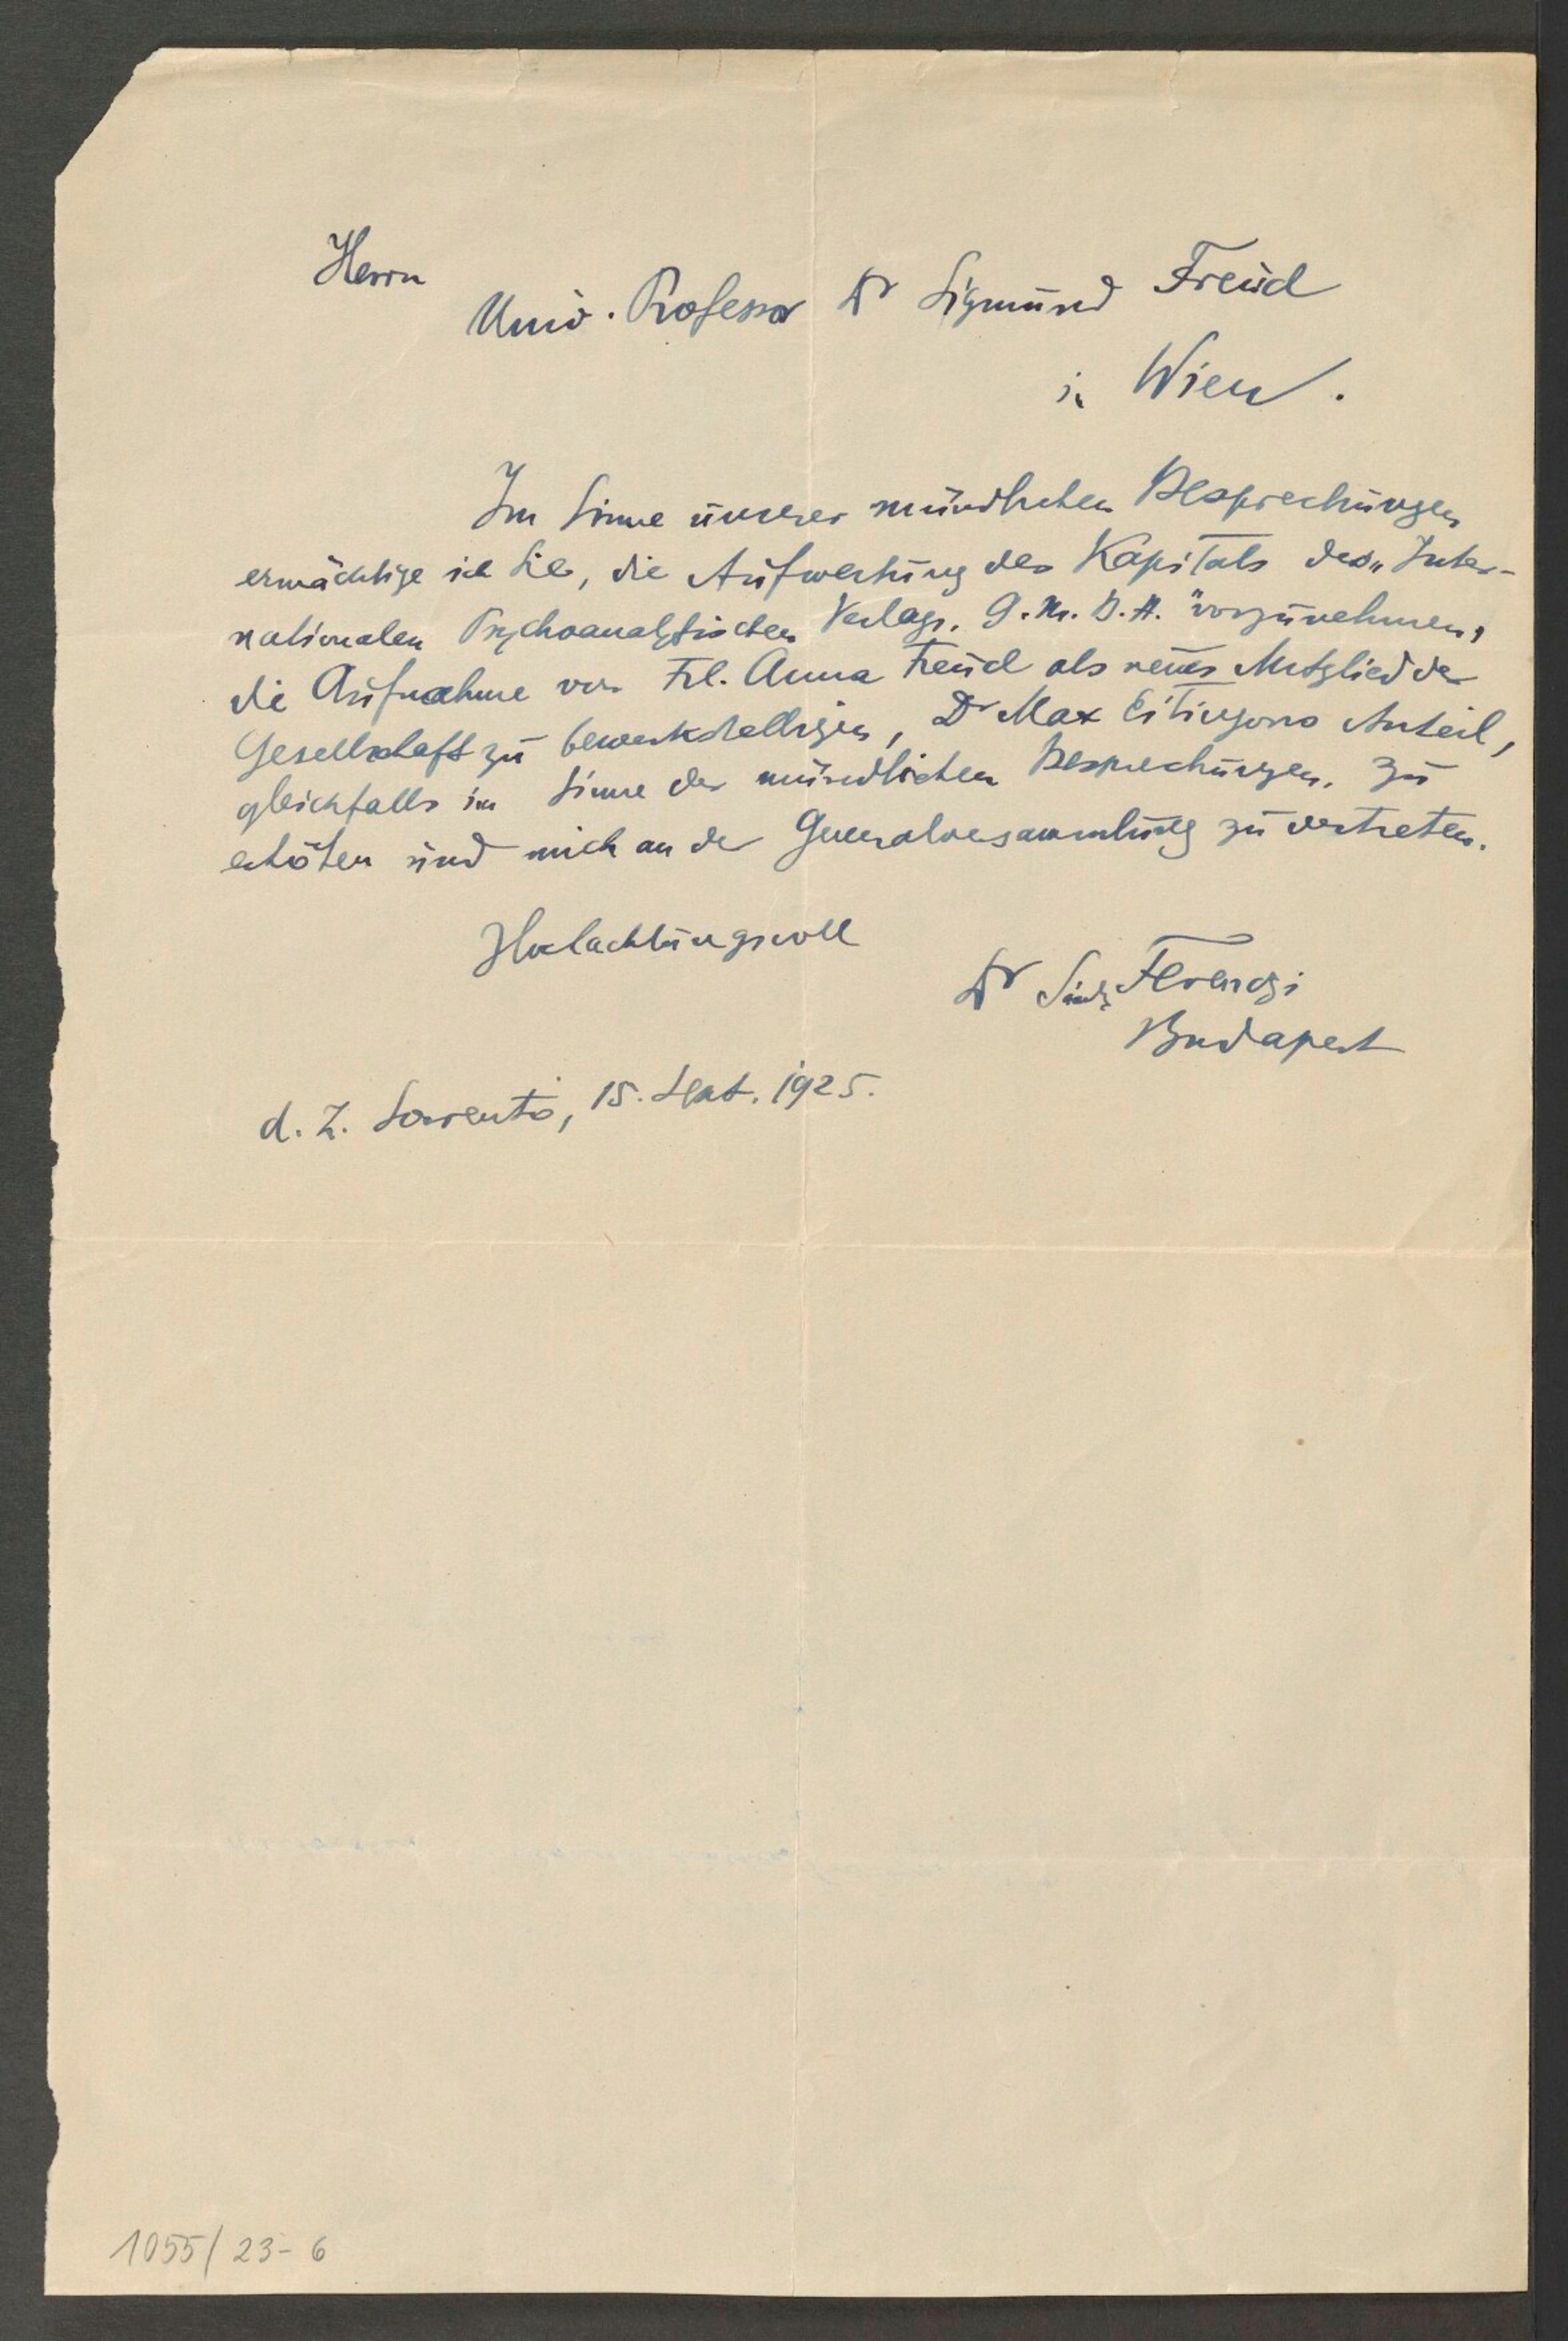 Herrn
Univ. Professor Dr Sigmund Freud
in Wien.
Im Sinne unserer mündlichen Besprechungen
ermächtige ich Sie, die Aufwertung des Kapitals des „Inter-
nationalen Psychoanalytischen Verlags, G.M.B.H." vorzunehmen,
die Aufnahme von Frl. Anna Freud als neues Mitglied der
Gesellschaft zu bewerkstelligen, Dr Max Eitingons Anteil,
gleichfalls im Sinne der mündlichen Besprechungen, zu
erhöhen und mich an der Generalversammlung zu vertreten.
Hochachtungsvoll
Dr Ferenczi
Budapest
d. Z. Sorrento, 15. Sept. 1925.
1055/23-6